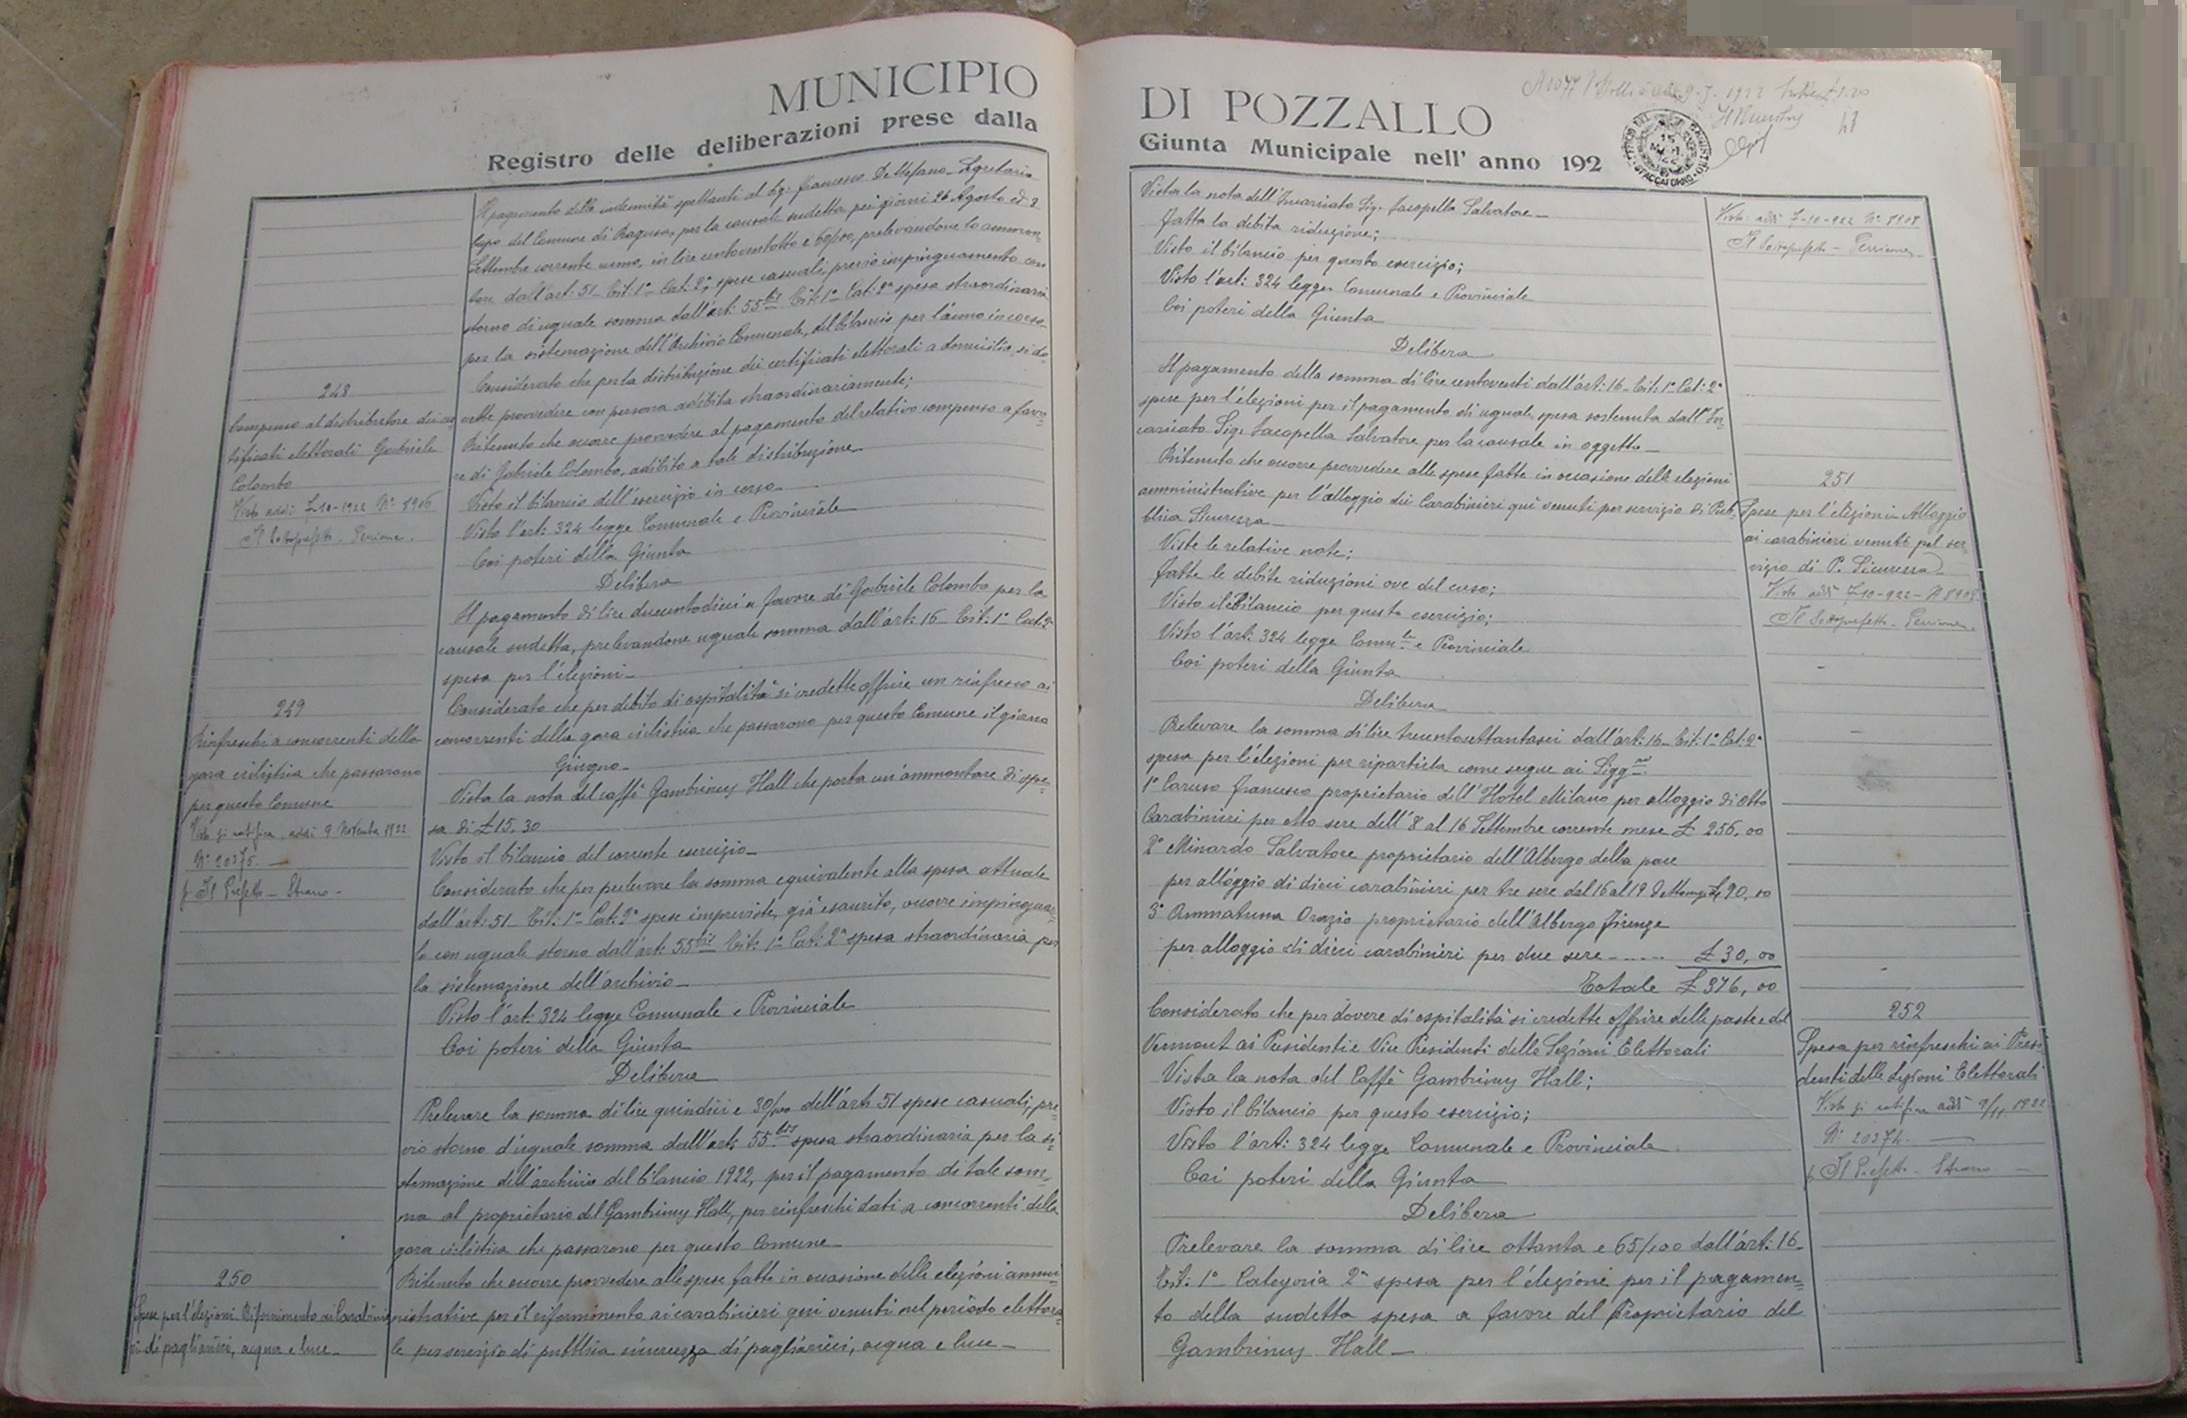 MUNICIPIO
Registro delle deliberazioni prese dalla
Il pagamento delle indennità spettanti al Sig. Francesco De Stefano Segretario
Capo del Comune di Ragusa, per la causale sudetta pei giorni 26 Agosto e 2
Settembre corrente anno, in lire centoventotto e 60/00, prelevandone lo ammon
tare dall'art. 51 Tit: 1° Cat: 2ª spese casuali, previo impinguamento con
storno di uguale somma dall'art: 55 bis Tit: 1° Cat: 2ª spesa straordinaria
per la sistemazione dell'Archivio Comunale, del bilancio per l'anno in corso
248
Compenso al distributore dei cer
tificati elettorali Gabriele
Colombo
Visto addì 7-10-1922 N° 8906
Il Sottoprefetto
Considerato che per la distribuzione dei certificati elettorali a domicilio, si do=
vette provvedere con persona adibita straordinariamente;
Ritenuto che occorre provvedere al pagamento del relativo compenso a favo=
re di Gabriele Colombo, adibito a tale distribuzione
Visto il bilancio dell'esercizio in corso
Visto l'art: 324 legge Comunale e Provinciale
Coi poteri della Giunta
Delibera
Il pagamento di lire duecentodieci a favore di Gabriele Colombo per la
causale sudetta, prelevandone uguale somma dall'art: 16 Tit: 1° Cat: 2ª
spesa per l'elezioni
249
Rinfreschi a concorrenti della
gara ciclistica che passarono
per questo Comune
Visto si ratifica, addì 9 Novembre 1922
N° 20375.
p. Il Prefetto
Considerato che per debito di ospitalità si credette offrire un rinfresco ai
concorrenti della gara ciclistica che passarono per questo Comune il giorno
Giugno
Vista la nota del caffè Gambrinus Hall che porta un'ammontare di spe=
sa di £ 15,30
Visto il bilancio del corrente esercizio
Considerato che per prelevare la somma equivalente alla spesa attuale
dall'art: 51 Tit: 1° Cat: 2ª spese impreviste, già esaurito, occorre impinguar=
lo con uguale storno dall'art: 55 bis Tit: 1° Cat: 2ª spesa straordinaria per
la sistemazione dell'archivio
Visto l'art: 324 legge Comunale e Provinciale
Coi poteri della Giunta
Delibera
Prelevare la somma di lire quindici e 30/00 dell'art: 51 spese casuali, pre=
vio storno d'uguale somma dall'art: 55 bis spesa straordinaria per la si=
stemazione dell'archivio del bilancio 1922, per il pagamento di tale som=
ma al proprietario del Gambrinus Hall, per rinfreschi dati a concorrenti della
gara ciclistica che passarono per questo Comune
250
Spese per l'elezioni Rifornimento ai Carabinie
ri di pagliaricci, acqua e luce
Ritenuto che occorre provvedere alle spese fatte in occasione delle elezioni ammi=
nistrative per il rifornimento ai carabinieri qui venuti nel periodo elettora=
le per servizio di pubblica sicurezza di pagliaricci, acqua e luce
DI POZZALLO
Giunta Municipale nell' anno 192
1922
Vista la nota dell'Incaricato Sig. Iacopella Salvatore
Fatta la debita riduzione;
Visto il bilancio per questo esercizio;
Visto l'art: 324 legge Comunale e Provinciale
Coi poteri della Giunta
Delibera
Il pagamento della somma di lire centoventi dall'art: 16 Tit: 1° Cat: 2ª
spese per l'elezioni per il pagamento di uguale spesa sostenuta dall'In=
caricato Sig. Iacopella Salvatore per la causale in oggetto
Visto addì 7-10-922 N° 8908
Il Sottoprefetto
Ritenuto che occorre provvedere alle spese fatte in occasione delle elezioni
amministrative per l'alloggio dei Carabinieri qui venuti per servizio di Pub=
blica Sicurezza
Viste le relative note;
Fatte le debite riduzioni ove del caso;
Visto il bilancio per questo esercizio;
Visto l'art: 324 legge Comu.le e Provinciale
Coi poteri della Giunta
Delibera
251
Spese per l'elezioni Alloggio
ai carabinieri venuti pel ser
vizio di P. Sicurezza
Visto addì 7-10-922 N 8909
Il Sottoprefetto
Prelevare la somma di lire trecentosettantasei dall'art: 16 Tit: 1° Cat: 2ª
spesa per l'elezioni per ripartirla come segue ai Sigg.ri
1° Caruso Francesco proprietario dell'Hotel Milano per alloggio di otto
Carabinieri per otto sere dell'8 al 16 Settembre corrente mese £ 256,00
2° Minardo Salvatore proprietario dell'Albergo della pace
per alloggio di dieci carabinieri per tre sere dal 16 al 19 Settempre £ 90,00
3° Ammatuna Orazio proprietario dell'Albergo Firenze
per alloggio di dieci carabinieri per due sere £ 30,00
Totale £ 376,00
Considerato che per dovere di ospitalità si credette offrire delle paste e del
Vermout ai Presidenti e Vice Presidenti delle Sezioni Elettorali
Vista la nota del Caffè Gambrinus Hall;
Visto il bilancio per questo esercizio;
Visto l'art: 324 legge Comunale e Provinciale
Coi poteri della Giunta
Delibera
252
Spesa per rinfreschi ai Presi
denti delle Sezioni Elettorali
Visto si ratifica addì 9/11 1922
N° 20374.
p. Il Prefetto
Prelevare la somma di lire ottanta e 65/00 dall'art: 16
Tit: 1° Categoria 2ª spesa per l'elezioni per il pagamen=
to della sudetta spesa a favore del Proprietario del
Gambrinus Hall